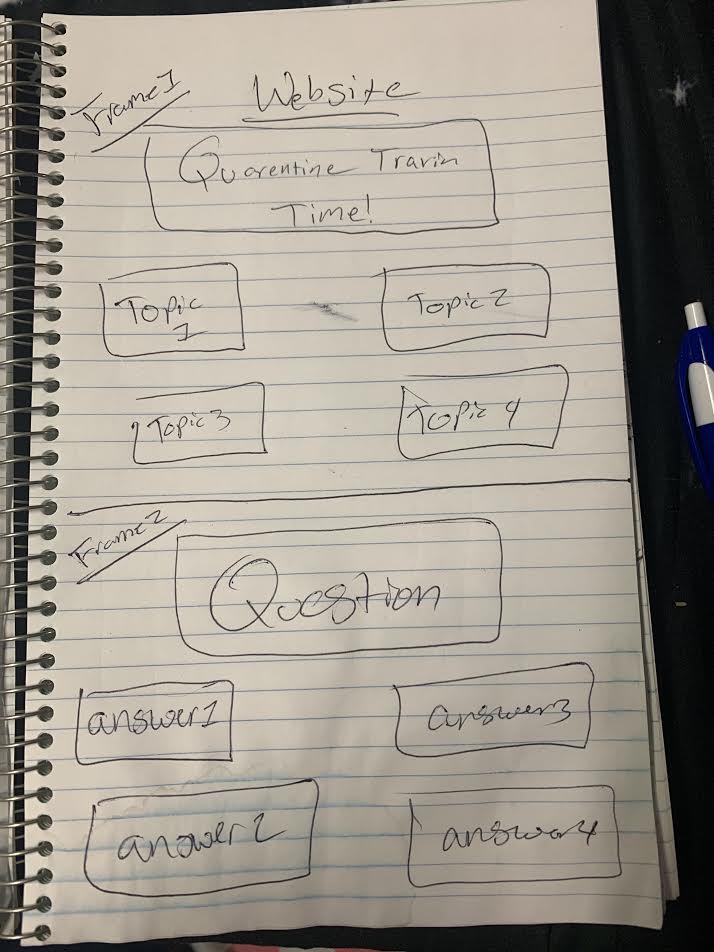 Frame 1
Website
Quarentine Travin
Time!
Topic
1
Topic 2
Topic 3
Topic 4
Frame 2
Question
answer1
answer3
answer2
answer4